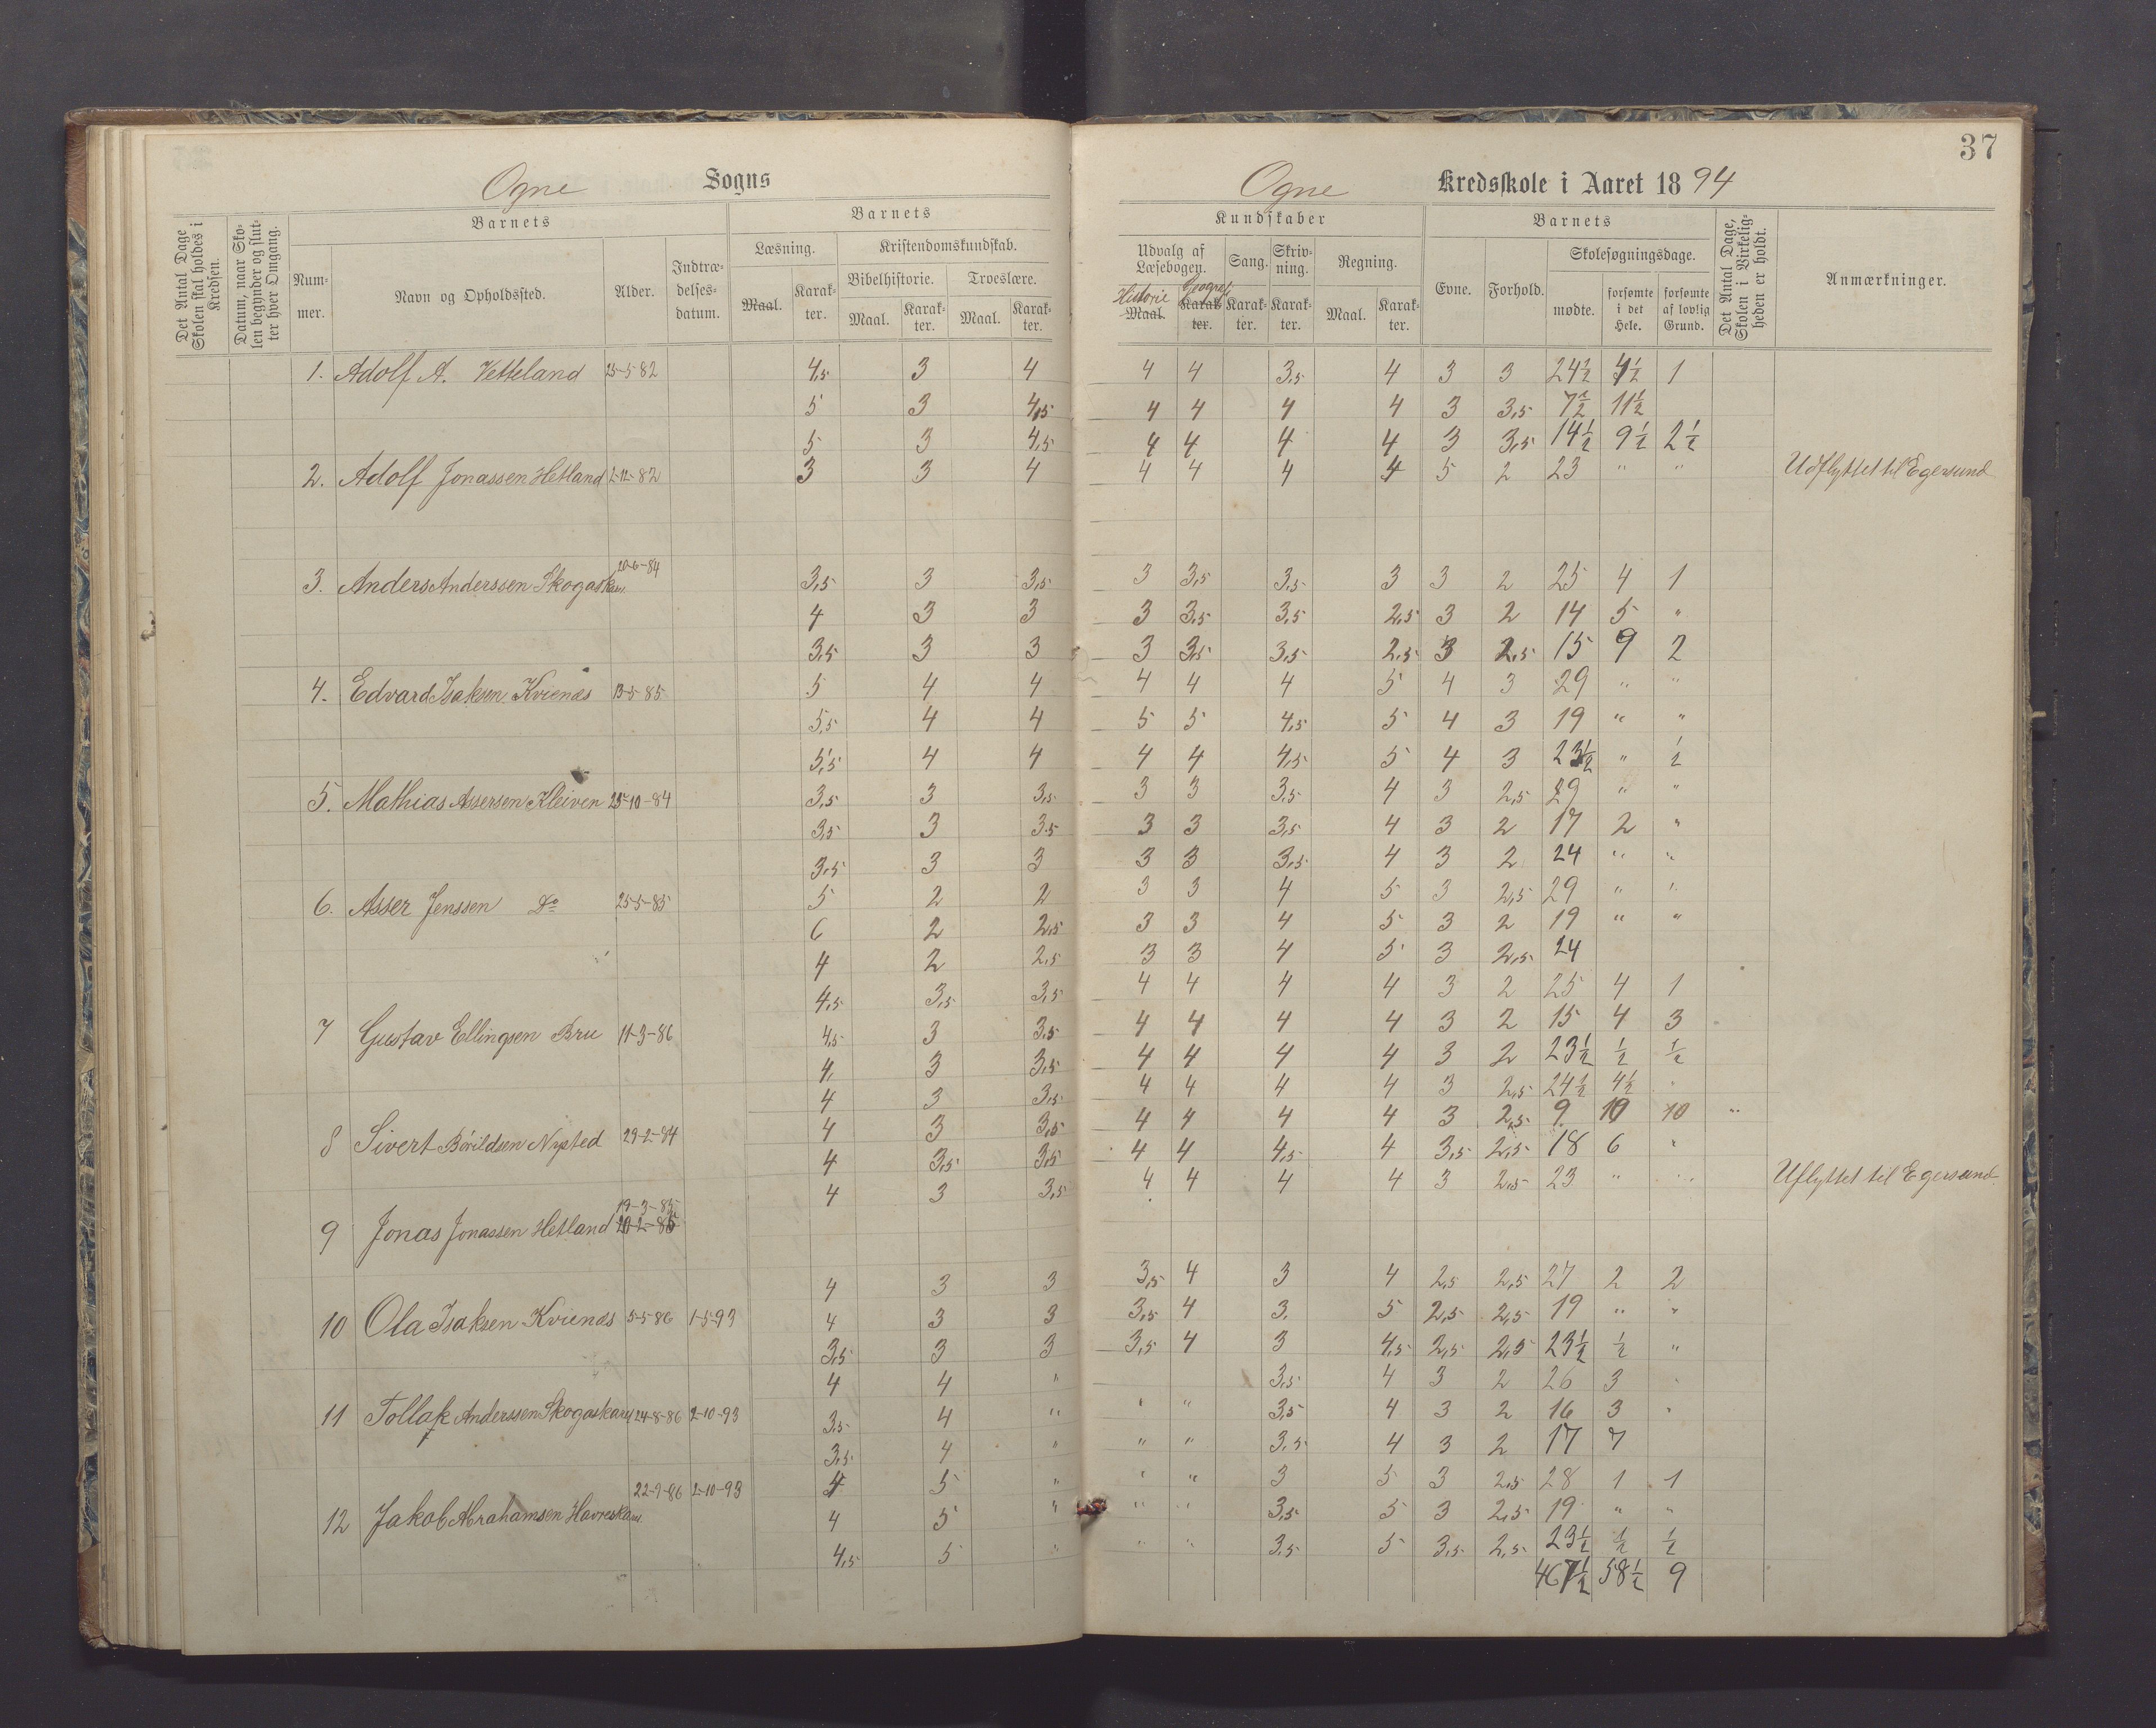 37
Ogne Sogns
Ogne Kredsskole i Aaret 1894
Det Antal Dage Skolen skal holdes i Kredsen.
Datum, naar Skolen begynder og slutter hver Omgang.
Barnets
Nummer.
Navn og Opholdssted.
Alder.
Indtrædelsesdatum.
Barnets
Læsning.
Maal.
Karakter.
Kristendomskundskab.
Bibelhistorie.
Maal.
Karakter.
Troeslære.
Maal.
Karakter.
Kundskaber
Udvalg af Læsebogen.
Historie
Maal.
Geograf.
Karakter.
Sang.
Karakter.
Skrivning.
Karakter.
Regning.
Maal.
Karakter.
Barnets
Evne.
Forhold.
Skolesøgningsdage.
mødte.
forsømte i det Hele.
forsømte af lovlig Grund.
Det Antal Dage, Skolen i Virkeligheden er holdt.
Anmærkninger.
1. Adolf A. Vetteland 25-5-82 4,5 3 4 4 4 3,5 4 3 3 24½ 4½ 1
5 3 4,5 4 4 4 4 3 3,5 7½ 11½
5 3 4,5 4 4 4 4 3 3,5 14½ 9½ 2½
2. Adolf Jonassen Hetland 2-12-82 3 3 4 4 4 4 4 5 2 23 " " Udflyttet til Egersund
3. Anders Anderssen Skogaskaru 20-6-84 3,5 3 3,5 3 3,5 3,5 3 3 2 25 4 1
4 3 3 3 3,5 3,5 2,5 3 2 14 5 "
3,5 3 3 3 3,5 3,5 2,5 3 2,5 15 9 2
4. Edvard Isaksen Kvienæs 13-5-85 5 4 4 4 4 4 5 4 3 29 " "
5,5 4 4 5 5 4,5 5 4 3 19 " "
5,5 4 4 4 4 4,5 5 4 3 23½ " ½
5. Mathias Assersen Kleiven 25-10-84 3,5 3 3,5 3 3 3,5 4 3 2,5 29 " "
3,5 3 3,5 3 3 3,5 4 3 2 17 2 "
3,5 3 3 3 3 3,5 4 3 2 24 " "
6. Asser Jenssen Do 25-5-85 5 2 2 3 3 4 5 3 2,5 29 " "
6 2 2,5 3 3 4 5 3 2 19 " "
4 2 2,5 3 3 4 5 3 2,5 24
4,5 3,5 3,5 4 4 4 4 3 2 25 4 1
7 Gustav Ellingsen Bru 11-3-86 4,5 3 3,5 4 4 4 4 3 2 15 4 3
4, 3 3,5 4 4 4 4 3 2 23½ ½ ½
4 3 3,5 4 4 4 4 3 2,5 24½ 4½ "
8 Sivert Bårildsen Nysted 29-2-84 4 3 3,5 4 4 4 4 3 2,5 9 10 10 "
4 3,5 3,5 4 4 4,5 4 3,5 2,5 18 6 "
4 3 3,5 4 4 4 4 3 2,5 23 " " Uflyttet til Egersund
19-3-85
9 Jonas Jonassen Hetland
4 3 3 3,5 4 3 4 2,5 2,5 27 2 2
10 Ola Isaksen Kvienæs 5-5-86 1-5-93 4 3 3 3,5 4 3. 5 2,5 2,5 19 " "
3,5 3 3 3,5 4 3 4,5 2,5 2,5 23½ ½ "
4 4 " 3,5 4 3 2 26 3 "
11 Tollak Anderssen Skogaskaru 24-8-86 2-10-93 3,5 4 " " " 3,5 4 3 2 16 3 "
3,5 4 " " " 3,5 4 3 2 17 7
22-9-86 2-10-93 4 5 " " " 3 5 3 2,5 28 1 1
12 Jakob Abrahamsen Havreskaru 4 5 " " " 3,5 5 3 2,5 19 " "
4,5 5 " " " 3,5 5 3,5 2,5 23½ ½ ½
467½ 58½ 9